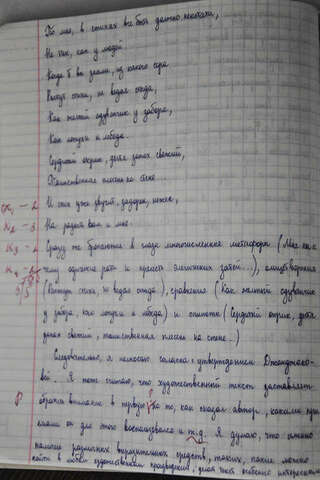 По мне, в стихах все быть должно некстати,
Не так, как у людей.
Когда б вы знали, из какого сора
Растут стихи, не ведая стыда,
Как желтый одуванчик у забора,
Как лопухи и лебеда.
Сердитый окрик, дегтя запах свежий,
Таинственная плесень на стене...
И стих уже звучит, задорен, нежен,
На радость вам и мне.
Сразу же бросаются в глаза многочисленные метафоры (Мне ни к
чему одические рати и прелесть элегических затей...), олицетворения
(Растут стихи, не ведая стыда), сравнения (Как желтый одуванчик
у забора, как лопухи и лебеда) и эпитеты (Сердитый окрик, дегтя
запах свежий, таинственная плесень на стене...)
Следовательно, я полностью согласна с утверждением Джанджако-
вой. Я тоже считаю, что художественный текст заставляет
обратить внимание в первую на то, как сказал автор, какими
он для этого воспользовался и т.д. Я думаю, что именно
помощи различных выразительных средств, таких, какие можно
найти в любом художественном произведении, делает текст особенно интересным